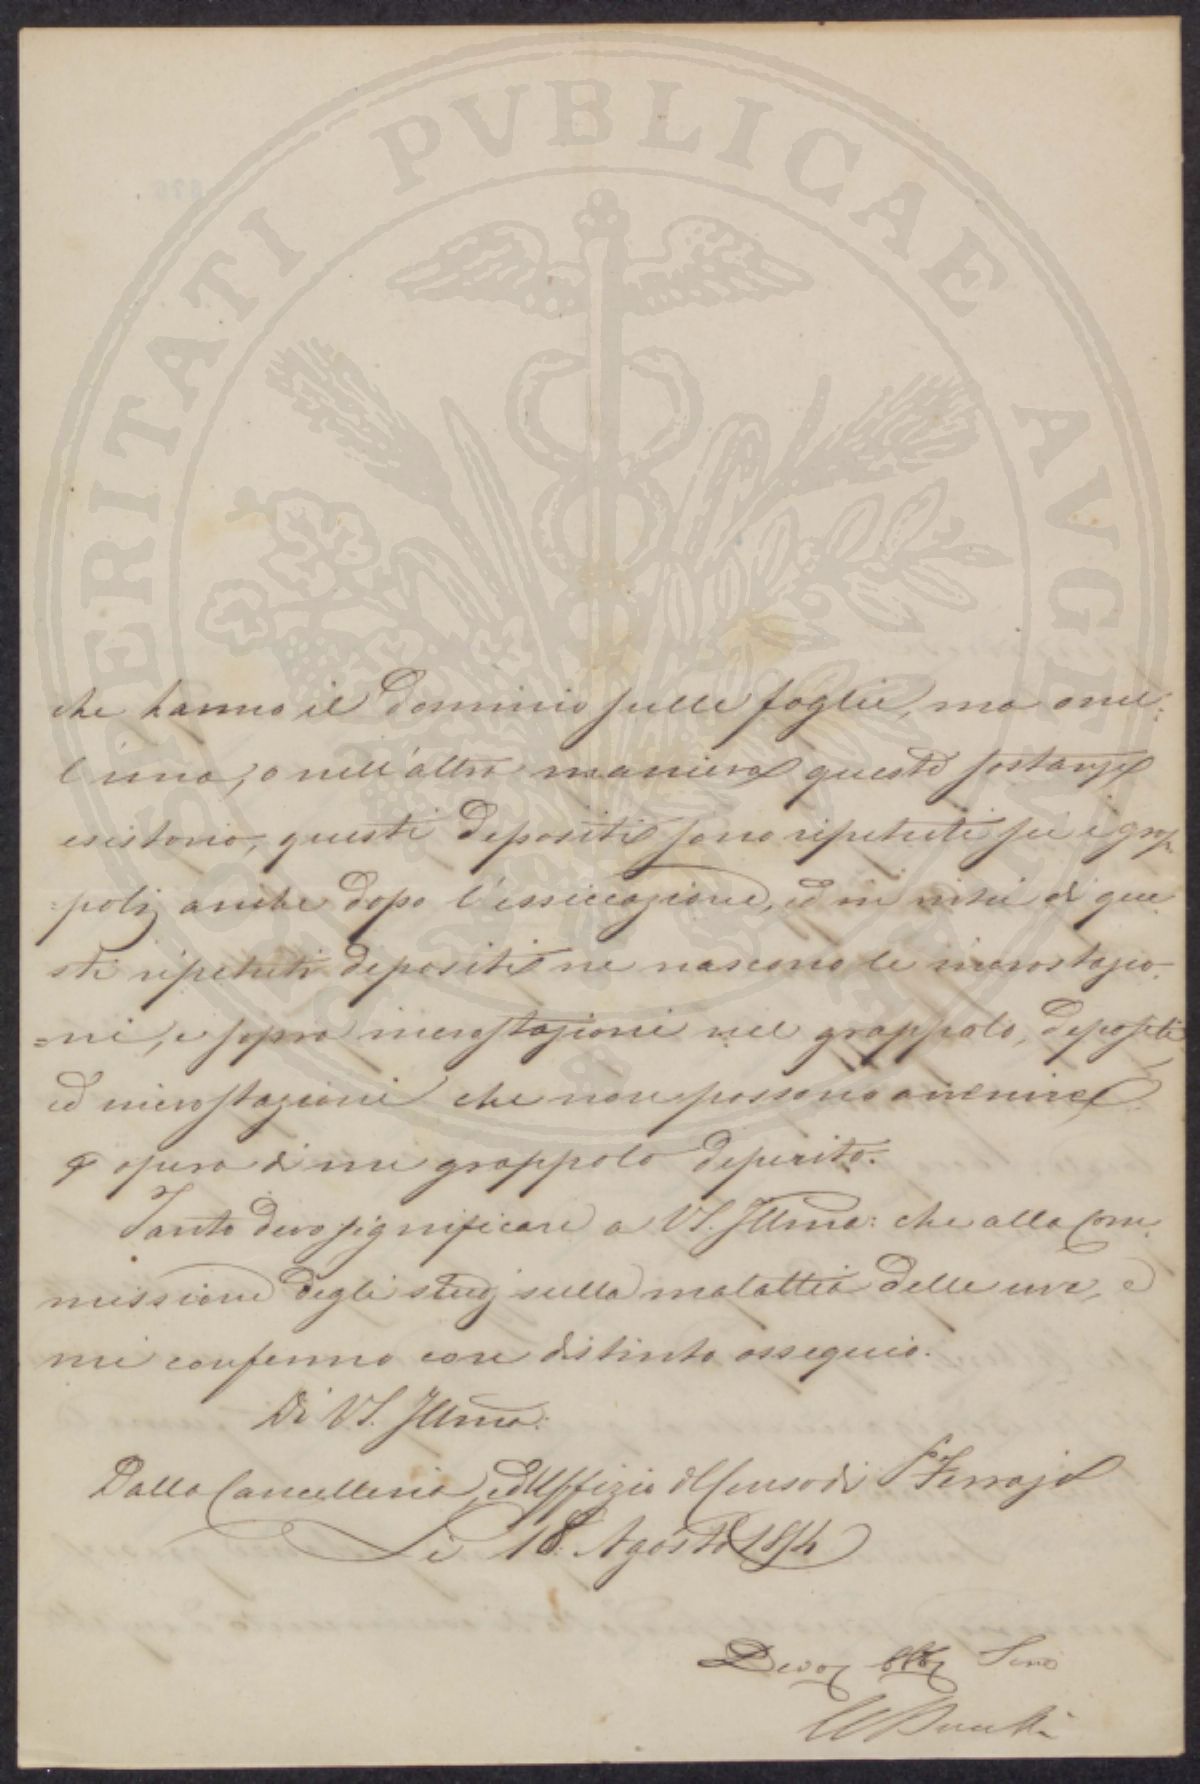 PROSPERITATI PVBLICAE AVGENDAE
che hanno il dominio sulle foglie, ma o nel:
l'una, o nell'altra maniera queste sostanze
esistono, questi depositi sono ripetuti su i grap
=poli anche dopo l'essiccazione, ed in virtù di que
sti ripetuti depositi ne nascono le incrostazio
=ni, e sopra incrostazioni nel grappolo, depositi
ed incrostazioni che non possono avvenire
opera di un grappolo deperito.
Tanto devo significare a VS. Illma: che alla Com
missione degli studj sulla malattia delle uve, e
mi confermo con distinto ossequio.
Di VS. Illma:
Dalla Cancelleria, ed Uffizio del Censo di P. Ferrajo
Li 18. Agosto 1854
Devo obbo Servo